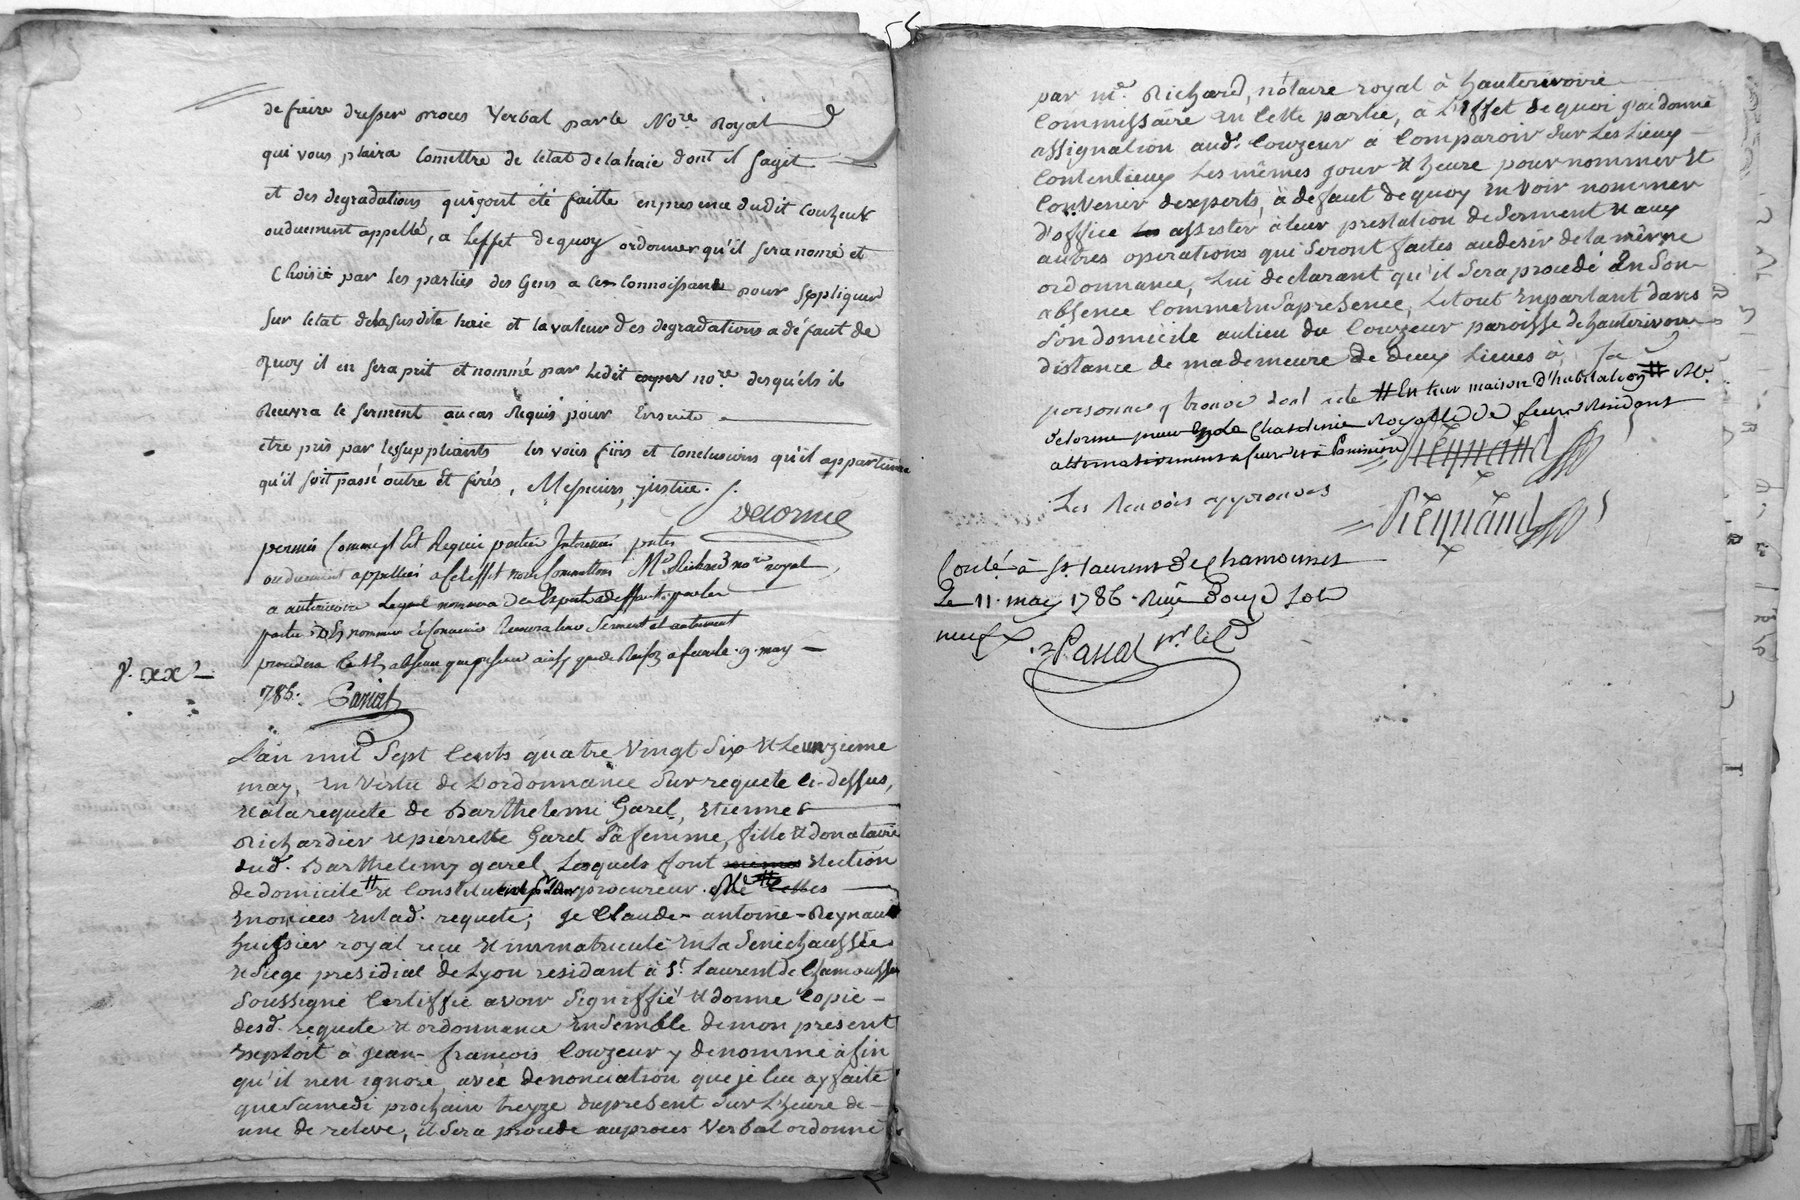 de faire dresser proces verbal par le No.re Royal
qui vous plaira comettre de letat de la haie dont il sagit
et des degradations qui y ont été faitte en presence dudit Couzeur
ou duement appellé, a leffet de quoy ordonner qu'il sera nomé et
Choisie par les parties des Gens a ce connoissant pour s'expliquer
sur letat de la susdite haie et la valeur des degradations a défaut de
quoy il en sera prit et nommé par ledit no.re desquels il
recevra le serment au cas requis pour Ensuite
etre pris par les suppliants les voies fins et Conclusions qu'il appartiendra
qu'il soit passé outre et ferés, Messieurs, justice.
Delorme
permis Commest Et Requis parties Interessées
ou duement appellées a Cet effet nous Commettons M.e Richard no.re royal
a auterivoire lequel nommera des Experts a deffaut par les
parties D'En nommer et Convenir Recevra leur Serment et autrement
procedera tant En absence que presence ainsy que de Raison a feurs le 9. may
786.
L'an mil Sept Cents quatre vingt Six & Le unzieme
may, en vertu de L'ordonnance sur requete ci-dessus,
& a la requete de Barthelemi Garel, Etienne
Richardier & pierrette Garel Sa femme, fille & donataire
dud. Barthelemy garel, Lesquels font Election
de domicile # & Constituent pour leur procureur M.e #
Enoncées En lad. requete; Je Claude-antoine-Reynaud
huissier royal recu & immatriculé En la Senechaussée
& Siege presidial de Lyon residant à S.t Laurent de Chamousset
Soussigné Certiffie avoir Signiffié & donné Copie
desd. requete & ordonnance Ensemble de mon present
Exploit à Jean-françois Couzeur y denommé afin
qu'il n'en ignore, avec denonciation que je lui ay faite
que Samedi prochain treyze du present Sur L'heure de
une de relevé, il Sera procede au proces verbal ordonné
par m.e Richard, notaire royal à hauterivoire
Commissaire En Cette partie, à L'Effet de quoi j'ai donné
assignation aud. Couzeur à Comparoir Sur Les Lieux
Contentieux Les mêmes jour & heure pour nommer &
Convenir d'experts, à defaut de quoy En voir nommer
d'office assister à leur prestation de Serment & aux
autres operations qui Seront faites au desir de la même
ordonnance, Lui declarant qu'il Sera procedé En Son
absence Comme En Sa presence, Le tout En parlant dans
Son domicile au lieu du Couzeur paroisse de hauterivoire
distance de ma demeure de deux Lieues à Sa
personne y trouvé dont acte # En leur maison d'habitation # M.e
Delorme
Reynaud
Les Renvois approuvés
Reynaud
Conlé à St. Laurent De Chamousset
Le 11. may 1786. Reçu Douze Sols
neuf d.
Pascal